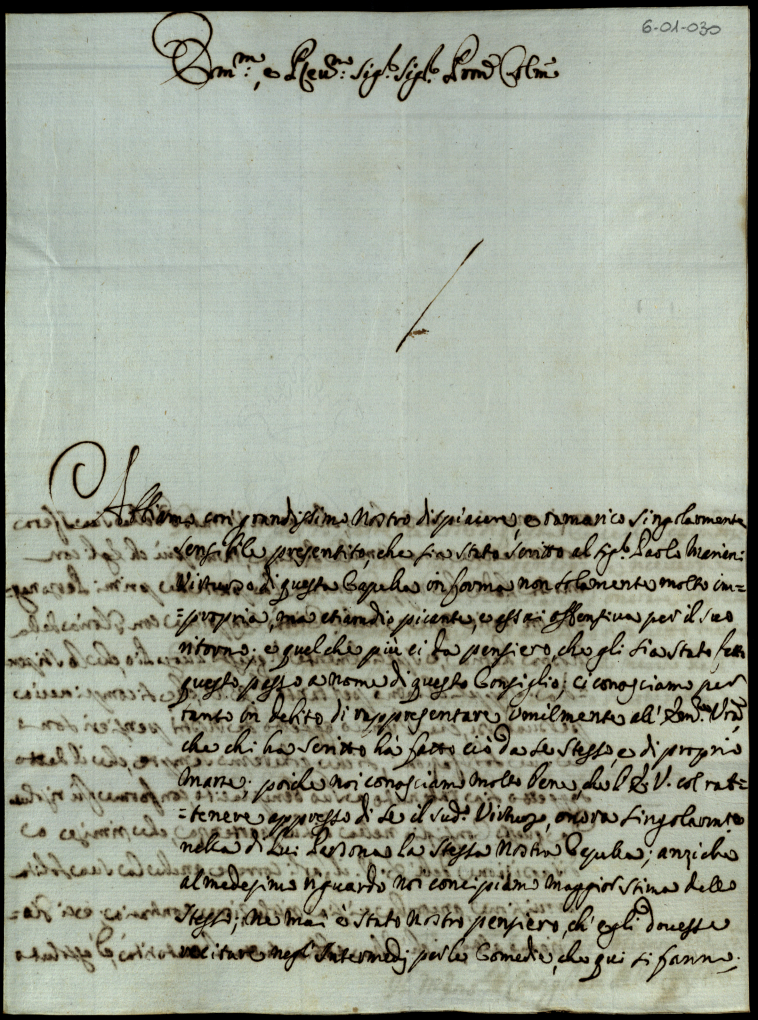 6-01-030
Em.mo, e Rev.mo Sig.r Sig.r Pron.e Col.mo
Abbiamo con grandissimo Nostro dispiacere, e ramarico singolarmente
sensibile presentito, che sia stato scritto al Sig.r Paolo Mariani
Virtuoso di questa Capella in forma non solamente molto im=
=propria, ma etiandio picante, e assai offensiva per il suo
ritorno; e quel che più ci dà pensiero, che gli sia stato fatto
questo passo a nome di questo Consiglio; ci conosciamo per
tanto in debito di rappresentare umilmente all' Em.za Vra
che chi ha scritto hà fatto ciò da se stesso, e di proprio
Marte; poiche noi conosciamo molto bene, che l'E. V. col rat=
=tenere appresso di se il sud.o Virtuoso, onora singolarm.te
nella di Lui Persona la stessa Nostra Capella; anziche
al medesimo riguardo noi concepiamo maggior stima dello
stesso; ne mai è stato nostro pensiero, ch' egli dovesse
recitare negl' Intermedj per le Comedie, che qui si fanno;